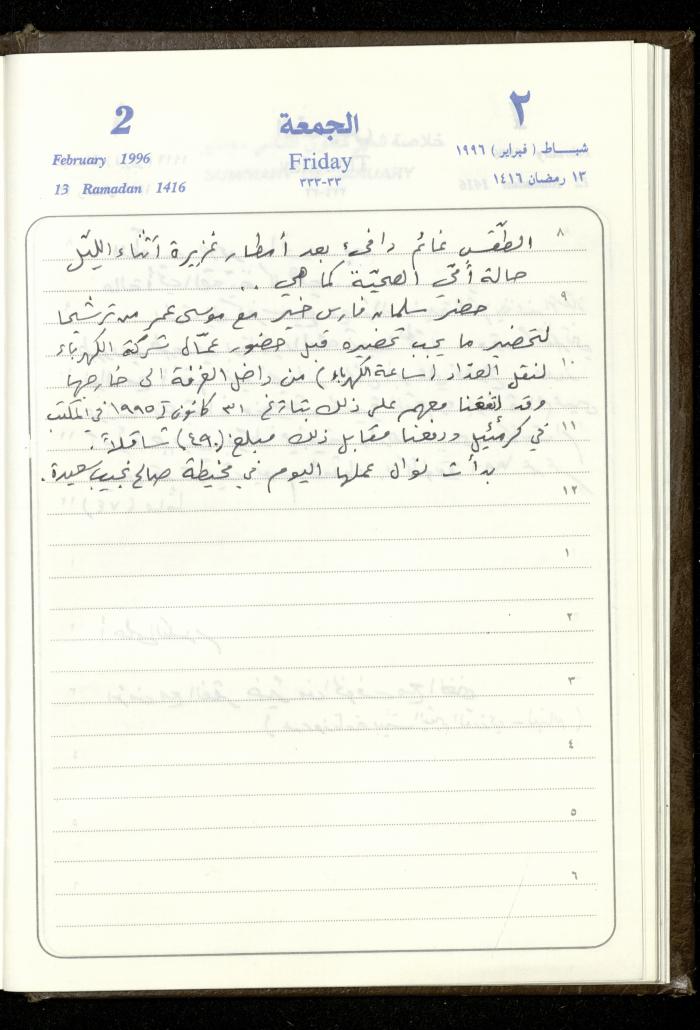 2
الجمعة
٢
February 1996
Friday
شباط ( فبراير ) ١٩٩٦
13 Ramadan 1416
٣٣-٣٣٣
١٣ رمضان ١٤١٦
٨
الطقس غائم دافىء بعد أمطار غزيرة أثناء الليل
حالة أمي الصحيّة كما هي ..
٩
حضر سلمان فارس خير مع موسى عمر من ترشيحا
لتحضير ما يجب تحضيره قبل حضور عمّال شركة الكهرباء
١٠
لنقل العدّاد (ساعة الكهرباء) من داخل الغرفة الى خارجها
وقد اتفقنا معهم على ذلك بتاريخ ٣١ كانون ١٩٩٥ في المكتب
١١
في كرمئيل ودفعنا مقابل ذلك مبلغ (٤٩٠) شاقلاً.
بدأت نوال عملها اليوم في مخيطة صالح نجيب سعيدة.
١٢
١
٢
٣
٤
٥
٦